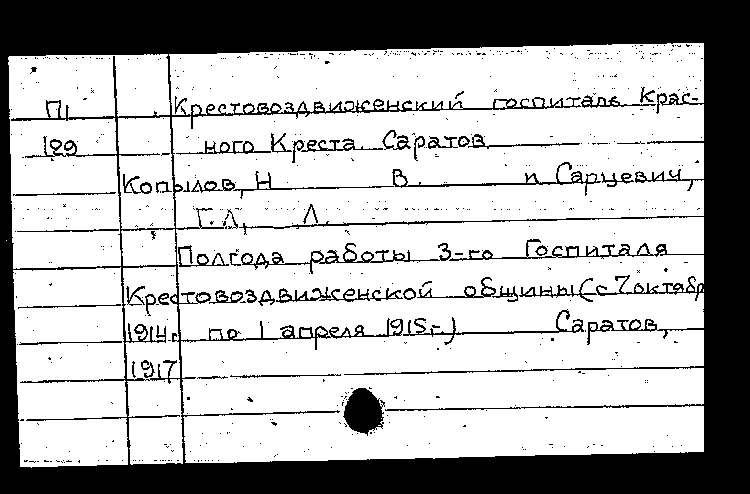 П1 Крестовоздвиженский госпиталь Крас-
189 ного Креста. Саратов
Копылов, Н В. п Сарцевич,
Г. Л.
Полгода работы 3-го Госпиталя
Крестовоздвиженской общины (с 7 октябр
1914г. по 1 апреля 1915г.) Саратов,
1917